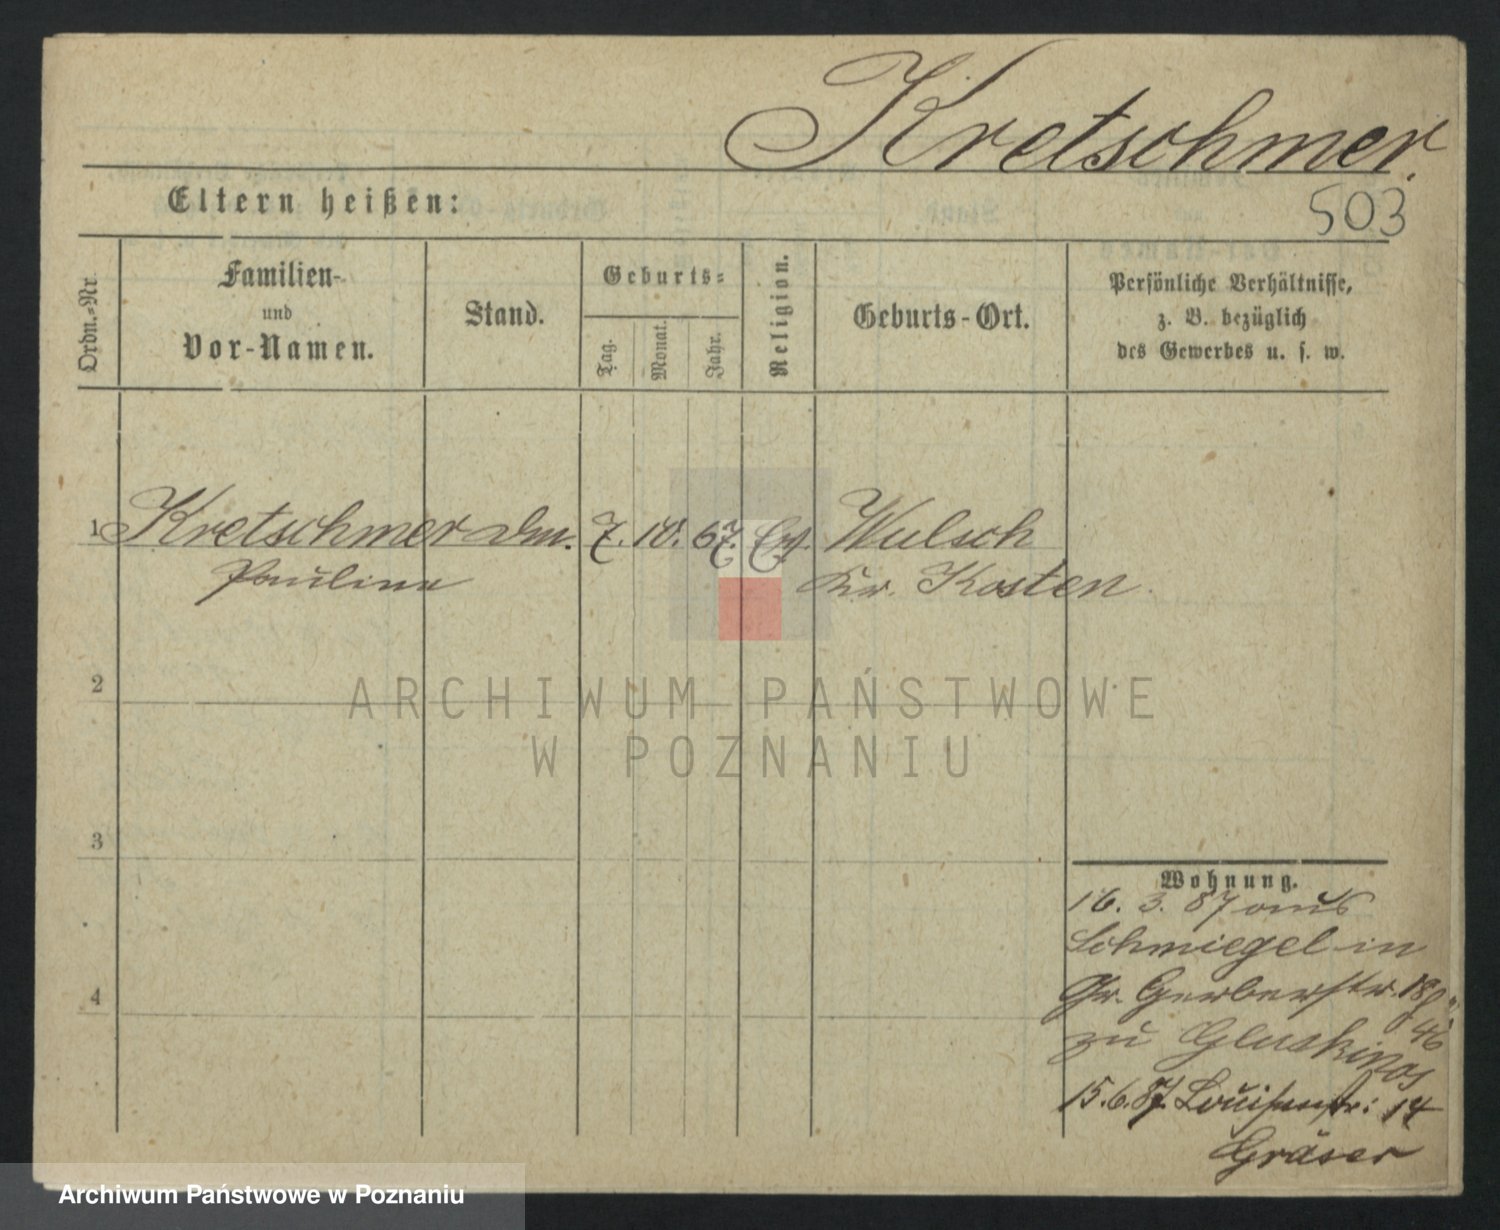 Kretschmer.
503
Eltern heißen:
Ordn.-Nr.
Familien-
und
Vor-Namen.
Stand.
Geburts-
Tag.
Monat.
Jahr.
Religion.
Geburts-Ort.
Persönliche Verhältnisse,
z. B. bezüglich
des Gewerbes u. s. w.
1 Kretschmer 7. 10. 67. Ev. Wulsch
Pauline Kr. Kosten.
2
ARCHIWUM PAŃSTWOWE
W POZNANIU
3
Wohnung.
16. 3. 87 aus
Schmiegel in
Gr. Gerberstr. 18
zu
15.6.87. Louisenstr: 14
Gräser
4
Archiwum Państwowe w Poznaniu